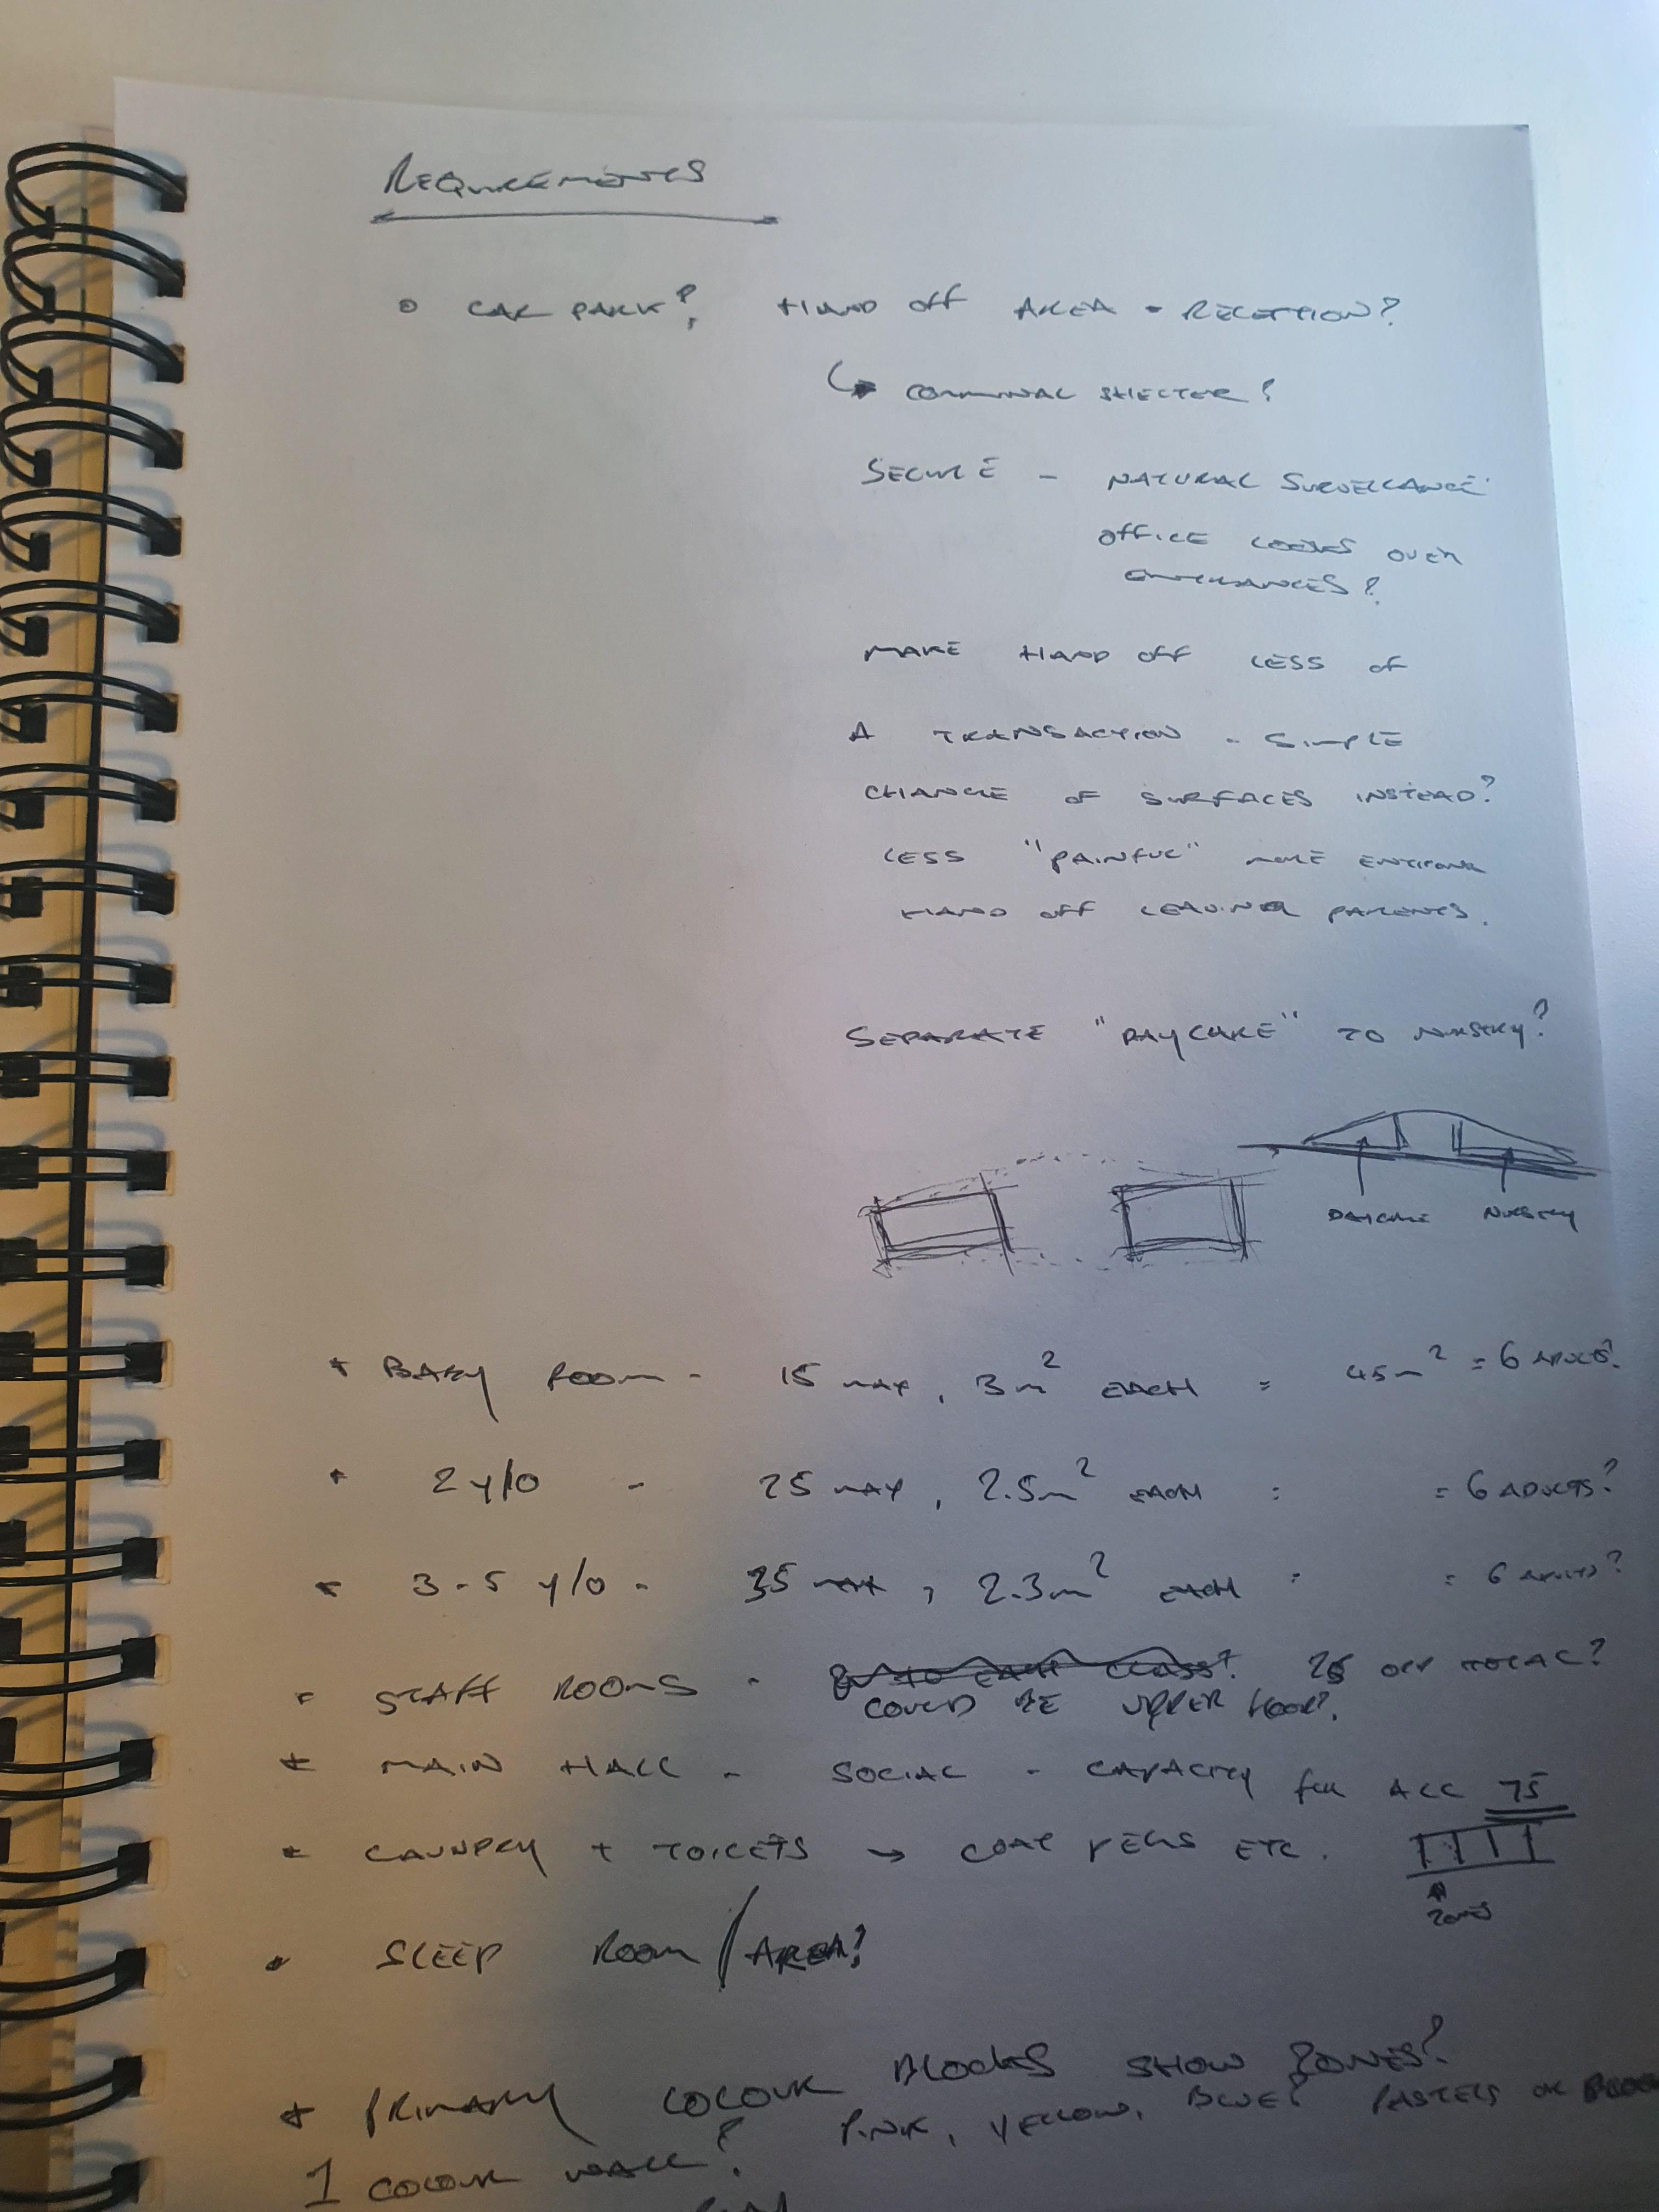 REQUIREMENTS
CAR PARK? HAND OFF AREA - RECEPTION?
↳ COMMUNAL SHELTER?
SECURE - NATURAL SURVEILLANCE
OFFICE LOOKS OVER
ENTRANCES?
MAKE HAND OFF LESS OF
A TRANSACTION - SIMPLE
CHANGE OF SURFACES INSTEAD?
LESS "PAINFUL" MORE
HAND OFF LEAVING PARENTS.
SEPARATE "DAYCARE" TO NURSERY?
DAYCARE NURSERY
BABY ROOM - 15 MAX, 3m² EACH = 45m² = 6 ADULTS?
2 y/o - 25 MAX, 2.5m² EACH = = 6 ADULTS?
3-5 y/o - 35 MAX, 2.3m² EACH = = 6 ADULTS?
STAFF ROOMS - TO EACH CLASS? OFF TOTAL?
COULD BE UPPER FLOOR?
MAIN HALL - SOCIAL - CAPACITY FOR ALL 75
LAUNDRY + TOILETS → COAT PEGS ETC.
ZONES
SLEEP ROOM / AREA?
PRIMARY COLOUR BLOCKS SHOW ZONES?
PINK, YELLOW, BLUE? PASTELS OR
1 COLOUR WALL?